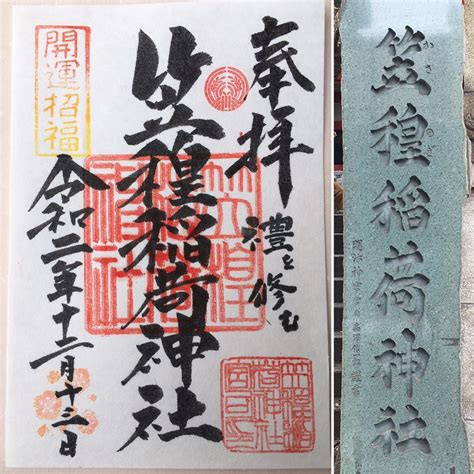 奉拝
禮を修む
笠䅣稲荷神社
開運招福
令和二年十二月十三日
笠䅣稲荷神社
かさのぎ